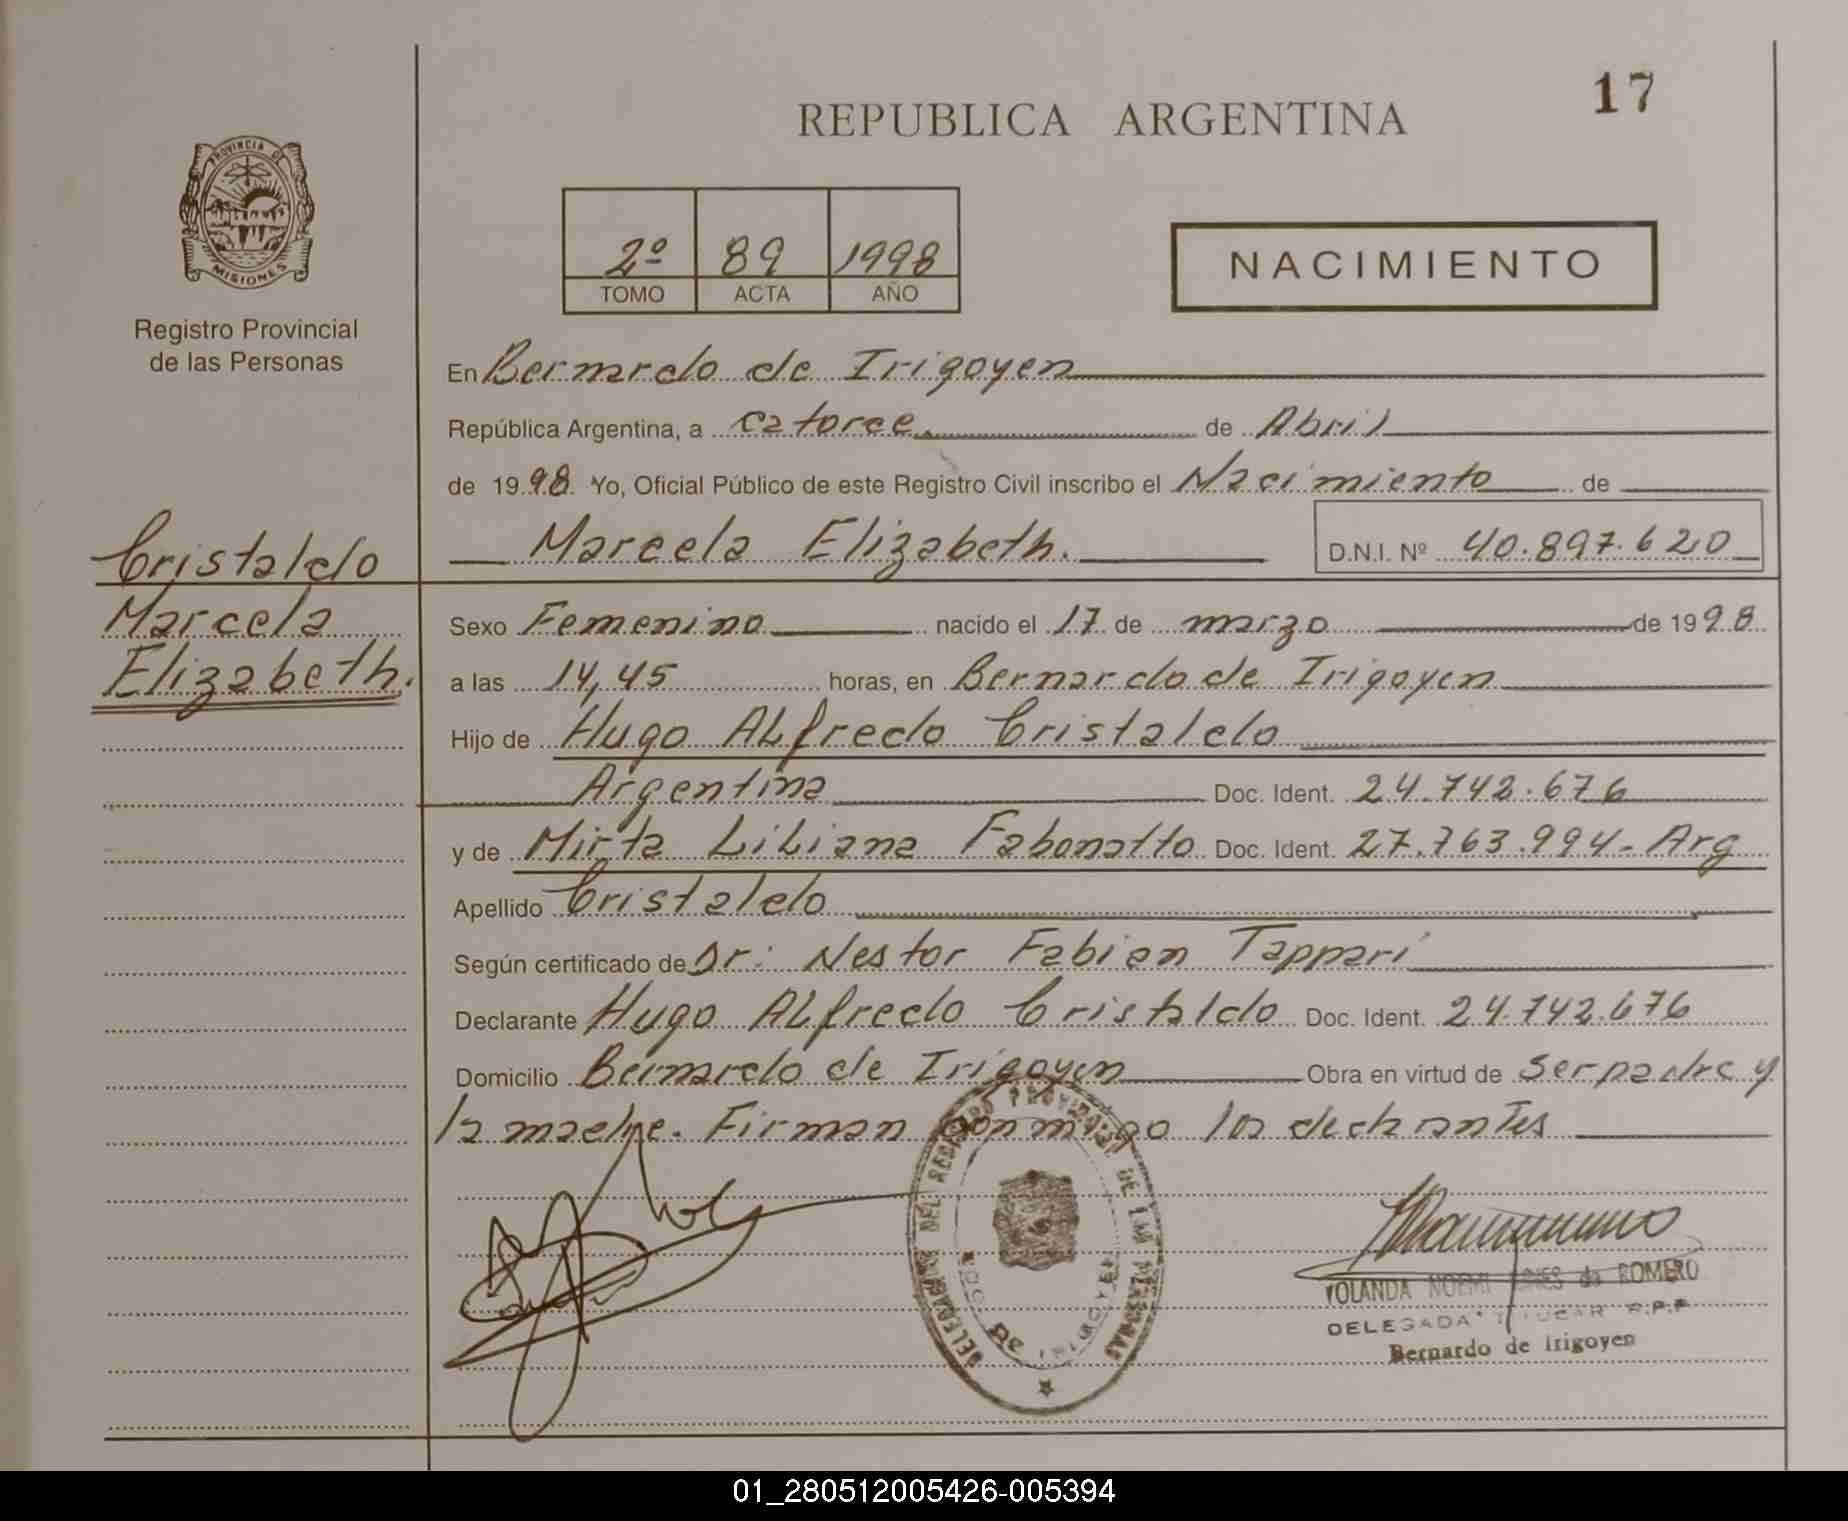 17
REPUBLICA ARGENTINA
PROVINCIA DE
MISIONES
Registro Provincial
de las Personas
2º 89 1998
TOMO ACTA AÑO
NACIMIENTO
En Bernardo de Irigoyen
República Argentina, a catorce de Abril
de 1998 Yo, Oficial Público de este Registro Civil inscribo el Nacimiento de
Marcela Elizabeth. D.N.I. Nº 40.897.620
Cristaldo
Marcela
Elizabeth.
Sexo Femenino nacido el 17 de marzo de 1998
a las 14,45 horas, en Bernardo de Irigoyen
Hijo de Hugo ALfredo Cristaldo
Argentina Doc. Ident. 24.742.676
y de Mirta LiLiana Fabonatto Doc. Ident. 27.763.994- Arg
Apellido Cristaldo
Según certificado de Dr: Nestor Fabian Tappari
Declarante Hugo ALfredo Cristaldo Doc. Ident. 24.742.676
Domicilio Bernardo de Irigoyen Obra en virtud de ser padre y
la madre. Firman conmigo los declarantes
DELEGACION DEL REGISTRO PROVINCIAL DE LAS PERSONAS
BDO. DE IRIGOYEN
YOLANDA NOEMI de ROMERO
DELEGADA TITULAR R.P.P
Bernardo de Irigoyen
01_280512005426-005394